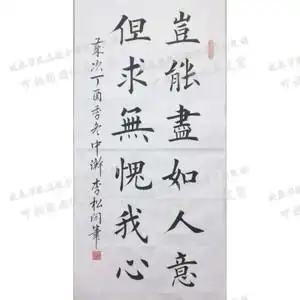 豈能盡如人意
但求無愧我心
歲次丁酉季冬中澣李松閏筆